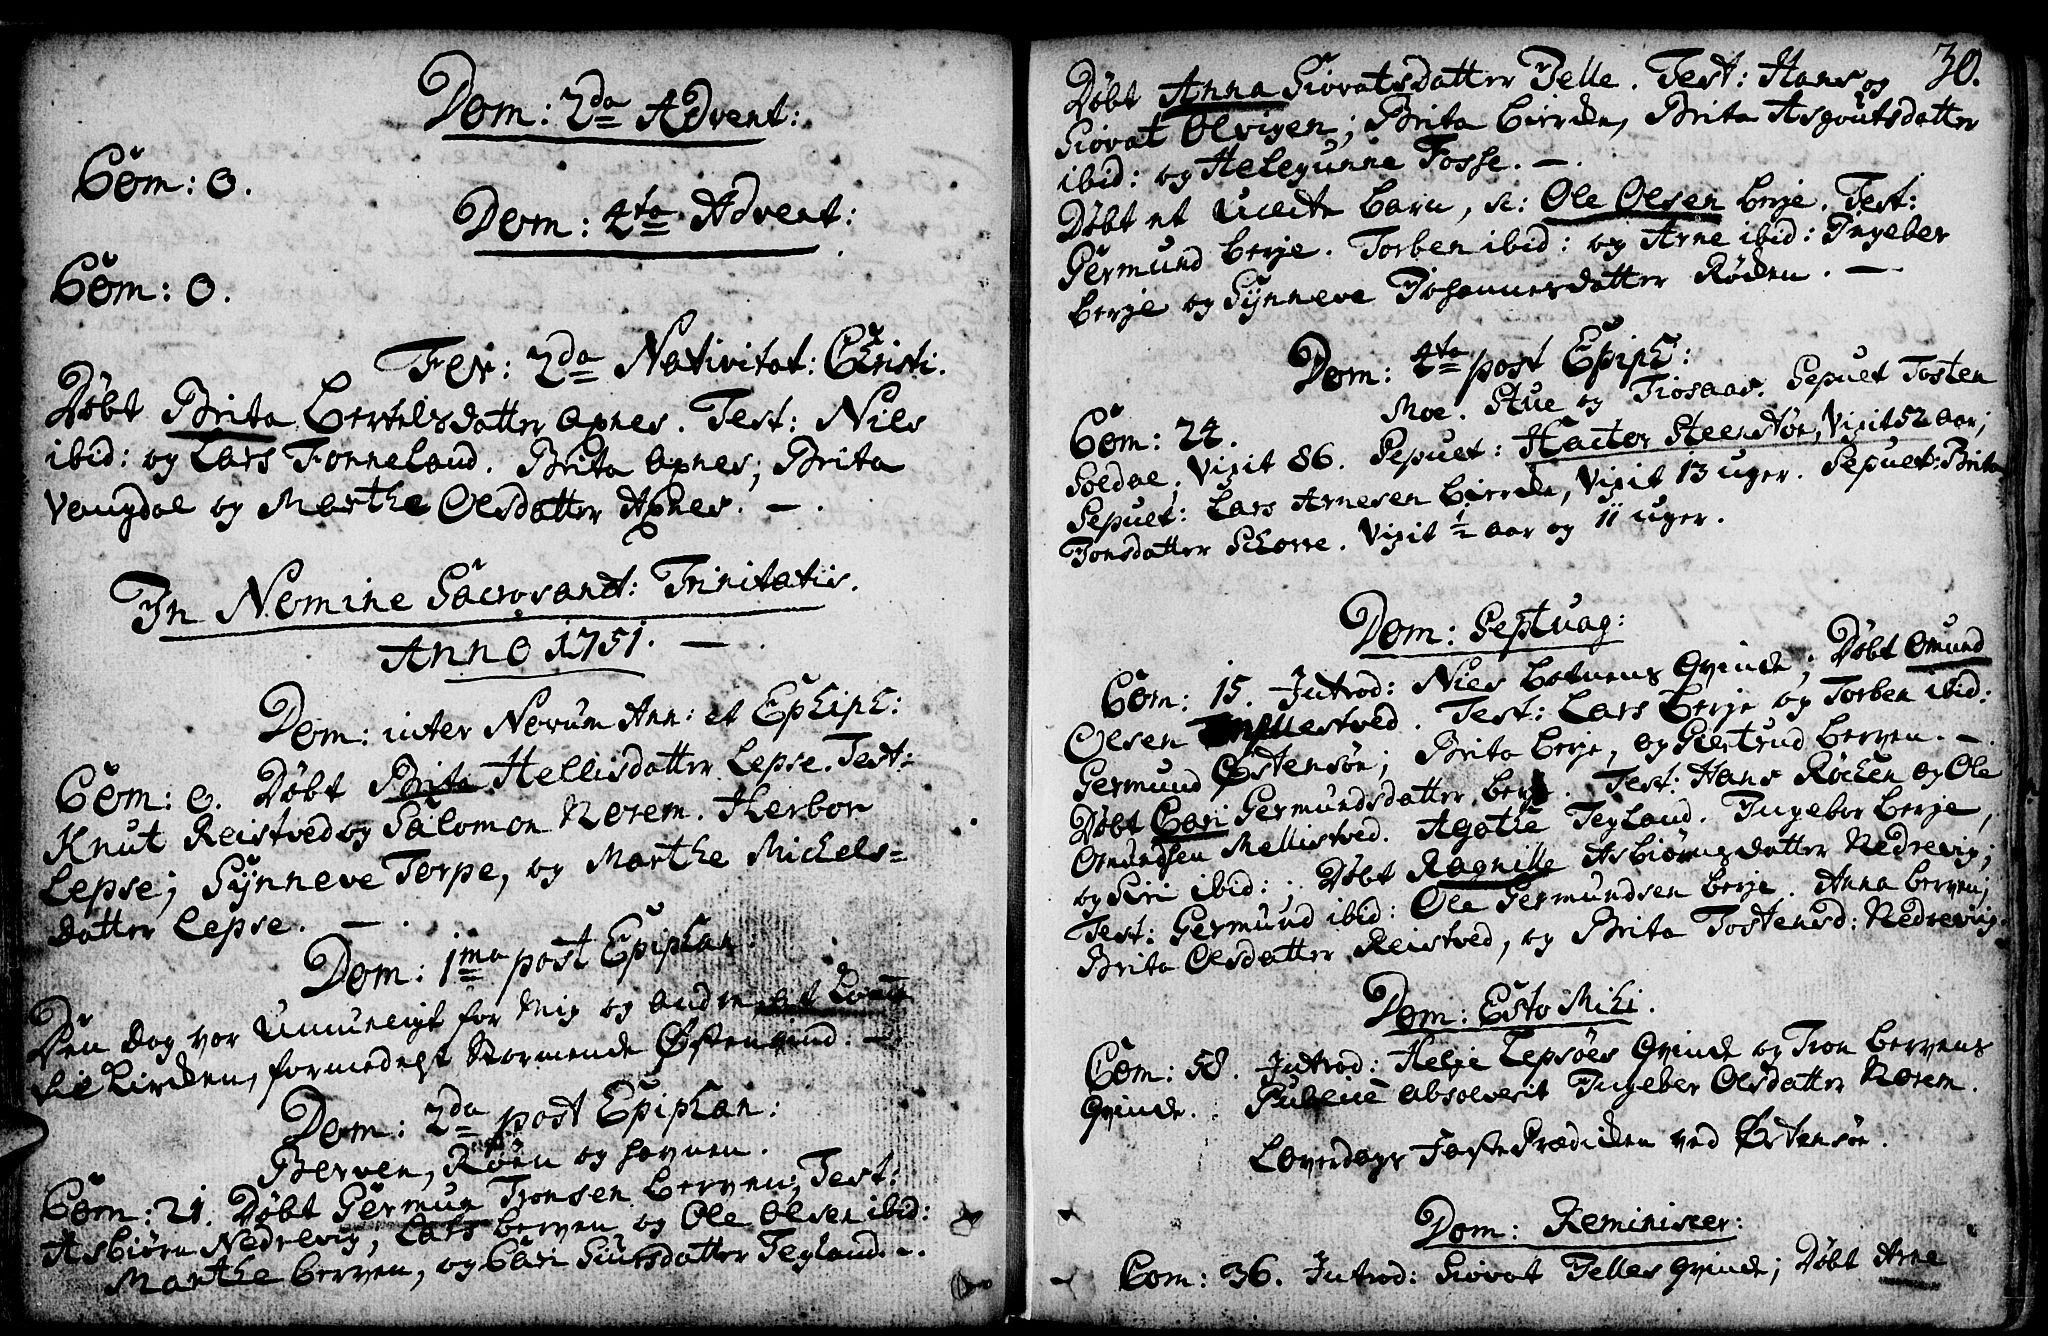 Dom: 2da Advent:
Com: 0.
Dom: 4ta Advent:
Com: 0.
Fer: 2da Nativitat: Christi.
Døbt Brita Bertelsdatter Axnes. Test: Niels
ibid: og Lars Fonneland. Brita Axnes; Brita
Vangdal og Marthe Olsdatter Axnes. —.
In Nomine Sacrosanct: Trinitatis.
Anno 1751. —.
Dom: inter Novum Ann: et Epiph:
Com: 0. Døbt Brita Hellisdatter Lepse. Test:
Knut Reistved og Salomon Norem. Herbor
Lepse; Sÿnneve Torpe, og Marthe Michels=
datter Lepse. —.
Dom: 1ma post Epiphan:
Den dag var Umueligt for Mig og andre at komme
til Kirken, formedelst Stormende Østenvind. —
Dom: 2da post Epiphan:
Berven, Røen og havnen.
Com: 21. Døbt Germun Tronsen Berven; Test:
Asbiørn Nedrevig, Lars Berven og Ole Olsen ibid:
Marthe Berven, og Cari Siursdatter Tegland. -.
30.
Døbt Anna Siovatsdatter Telle. Test: Hans og
Siovat Olvigen; Brita Birkin, Brita Asgoutsdatter
ibid: og Helegunne Fosse. —.
Døbt et Uægte barn, n: Ole Olsen Berje. Test:
Germund Berje. Torben ibid: og Arne ibid: Ingebor
Berje og Sÿnneve Johannesdatter Røden. —
Dom: 4ta post Epiph:
Com: 24. Moe. Stue og Tiosaas. Sepult Tosten
Soldal, Vixit 86. Sepult: Hactor Steenstøe, Vixit 52 aar;
Sepult: Lars Arnesen Birkin, Vixit 13 uger. Sepult: Brita
Jonsdatter Schorre. Vixit ½ aar og 11 uger.
Dom: Septuag:
Com: 15. Introd: Niels Botnens Qvinde; Døbt Omund
Olsen Mellestved. Test: Lars Berje og Torben ibid:
Germund Østensøe; Brita Berje, og Giertrud Berven. —.
Døbt Cari Germundsdatter Berje. Test: Hans Røchen og Ole
Omundsen Mellistved. Agathe Tegland. Ingebor Berje,
og Siri ibid: . Døbt Ragnille Asbiørnsdatter Nedrevig;
Test: Germund ibid: Ole Germundsen Berje. Anna Berven;
Brita Olsdatter Reistved, og Brita Tostensd: Nedrevig.
Dom: Esto Mihi.
Com: 58. Introd: Helje Tepsøes Qvinde og Tron Bervens
Qvinde. . Publice absolverit Ingebor Olsdatter Norem.
Loverdags FastePrædicken ved Østensøe.
Dom: Reminiscer:
Com: 36. Introd: Siovat Telles Qvinde; Døbt Arne